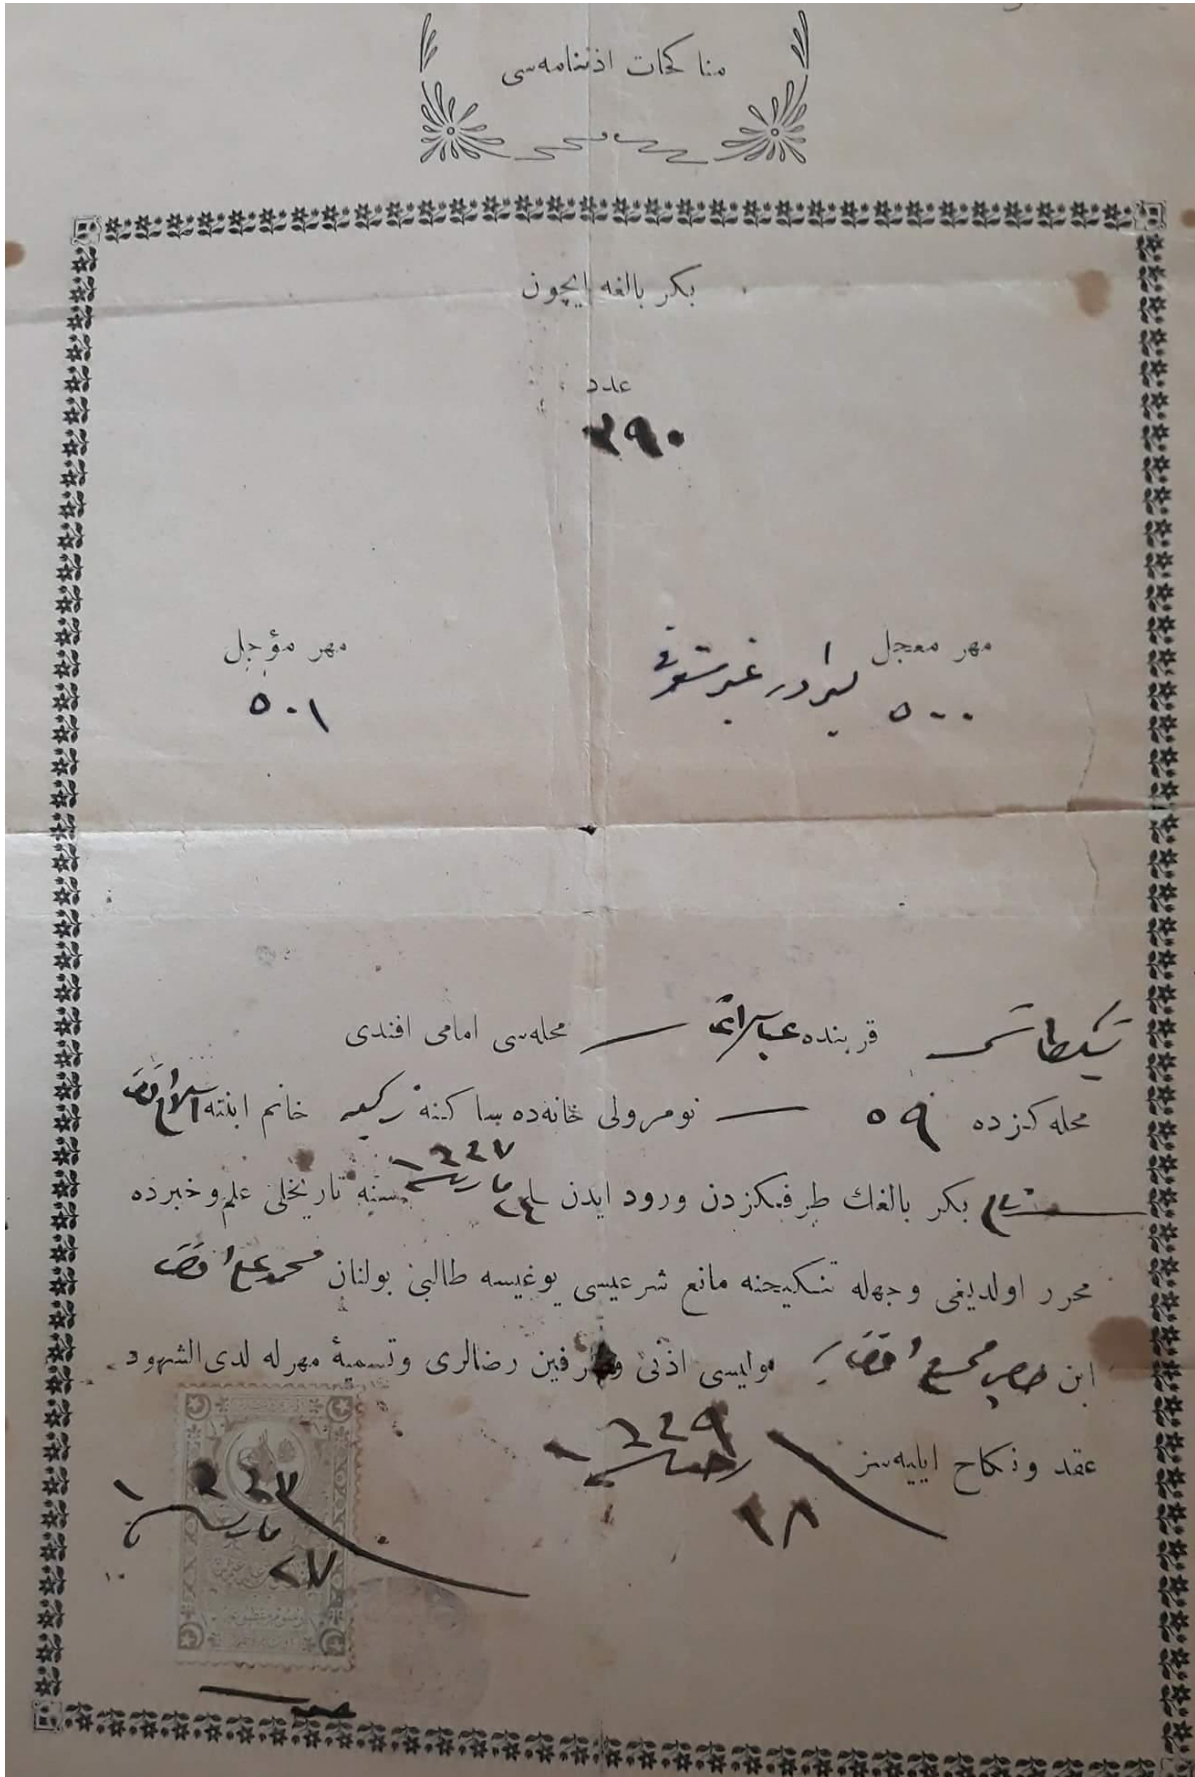 مناكحات اذننامه‌سی
بكر بالغه ایچون
عدد
٢٩٠
مهر معجل
٥٠٠
مهر مؤجل
٥٠١
بشكطاش قربنده عباس اغا محله‌سی امامی افندی
محله كزده ٥٩ نومرولی خانه‌ده ساكنه خانم ابنته
بكر بالغك طرفكزدن ورود ایدن ٢٤ مارت ١٣٢٧ سنه تاریخلی علم وخبرده
محرر اولدیغی وجهله تنكیحنه مانع شرعیسی یوغیسه طالبی بولنان محمد علی افندی
ابن مولیسی اذنی وطرفین رضالری وتسمیهٔ مهرله لدی الشهود
عقد ونكاح ایلیه‌سز
١٣٢٩
٢٨
١٣٢٧
مارت
٢٧